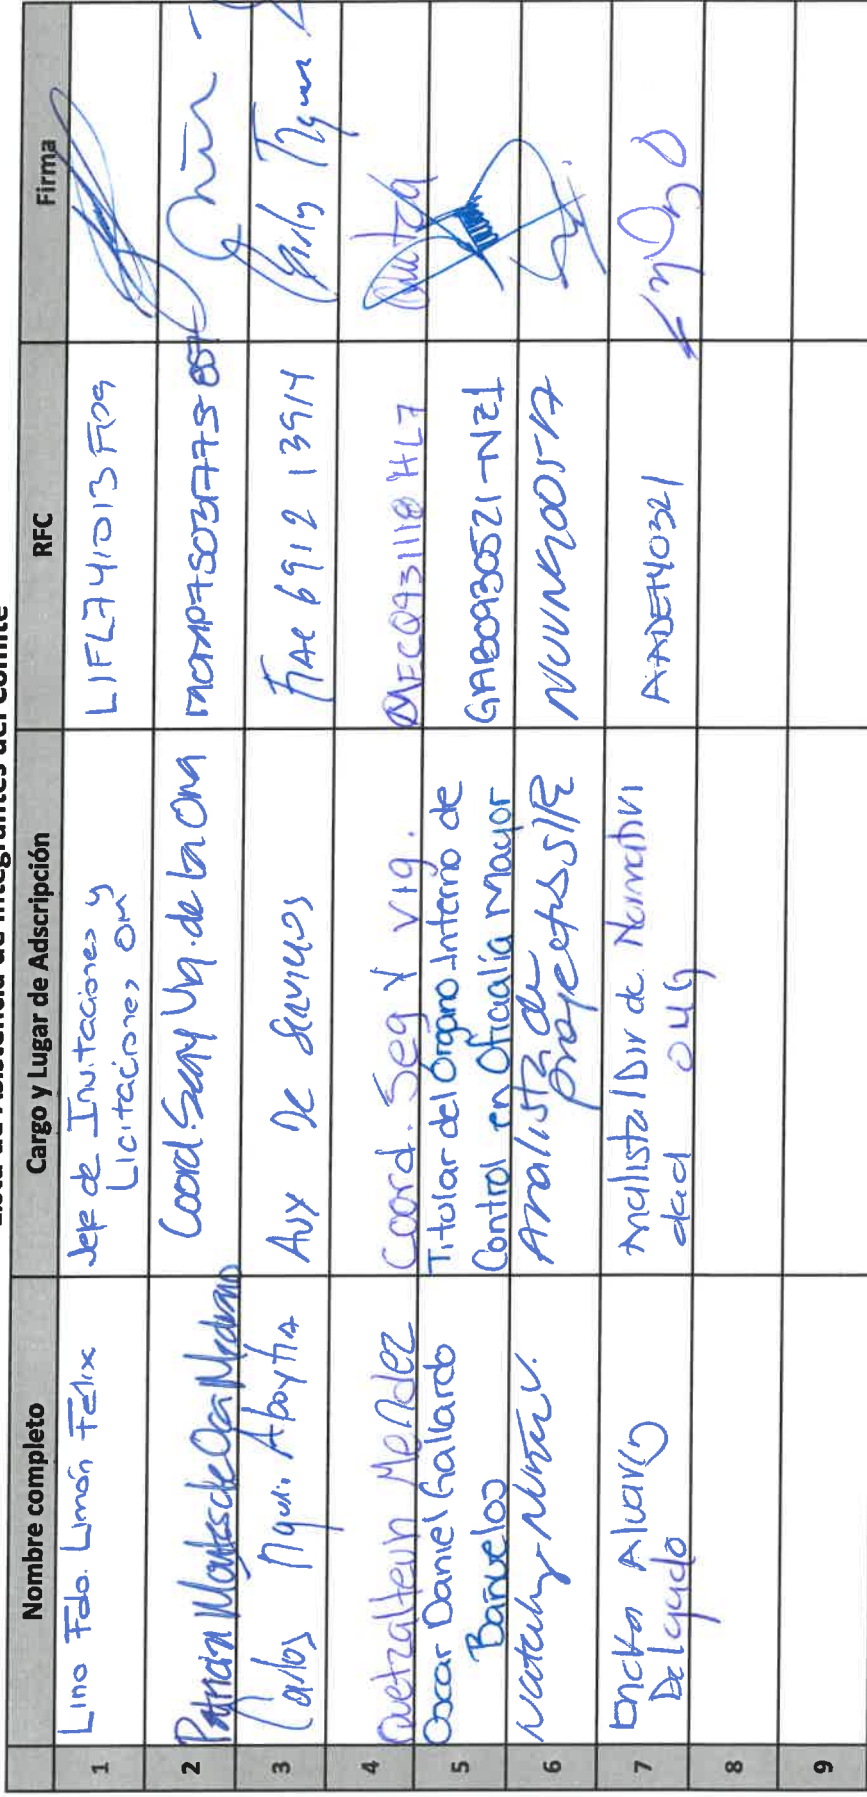 Lista de Asistencia de Integrantes del Comité
Nombre completo Cargo y Lugar de Adscripción RFC Firma
1 Lino Fdo. Limón Félix Jefe de Invitaciones y
Licitaciones OM LIFL741013FQ9
2 Patricia Montes de Oca Medrano Coord. Seg y Vig. de la OM
3 Carlos Aboytia Aux De Servicios
4 Quetzaltzin Mendez Coord. Seg y Vig. MECQ931118HL7
5 Oscar Daniel Gallardo
Bañuelos Titular del Órgano Interno de
Control en Oficialía Mayor GABO930521-NZ1
6 Nataly Núñez V. Analista de
proyectos
7 Ericka Alvarez
Delgado Analista/Dir de Normativi
dad OMG AADE740321
8
9